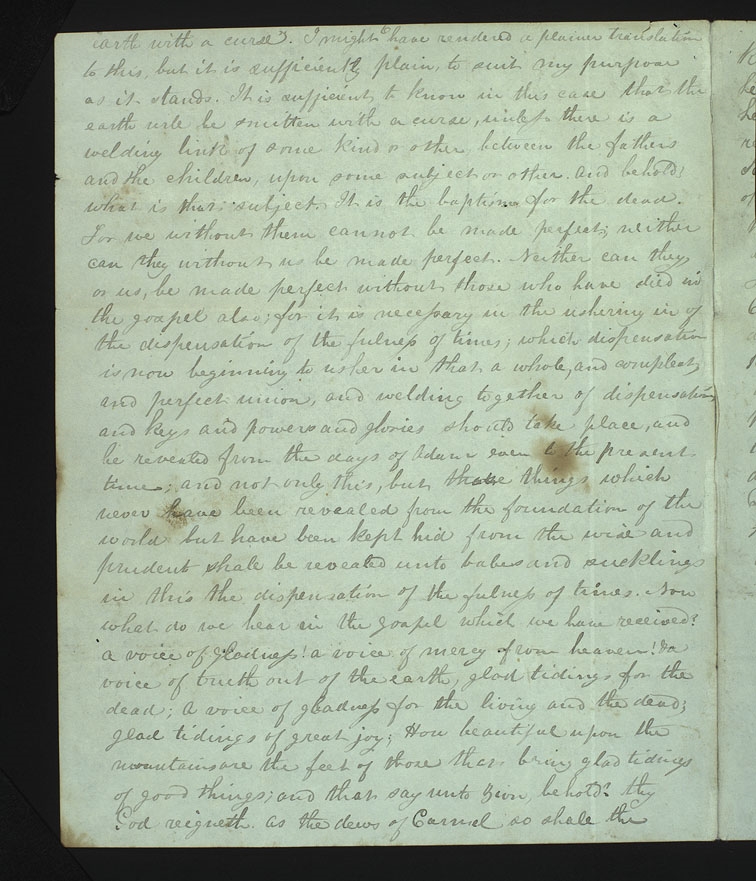 earth with a curse". I might have rendered a plainer translation
to this, but it is sufficiently plain, to suit my purpose
as it stands. It is sufficient to know in this case that the
earth will be smitten with a curse, unless there is a
welding link of some kind or other, between the fathers
and the children, upon some subject or other. and behold!
what is that subject. It is the baptism for the dead.
For we without them cannot be made perfect; neither
can they without us be made perfect. Neither can they
or us, be made perfect without those who have died in
the gospel also; for it is necessary in the ushering in of
the dispensation of the fulness of times; which dispensation
is now beginning to usher in that a whole, and compleat,
and perfect union, and welding together of dispensations
and keys and powers and glories should take place, and
be revealed from the days of Adam even to the present
time; and not only this, but those things which
never have been revealed from the foundation of the
world but have been kept hid from the wise and
prudent shall be revealed unto babes and sucklings
in this the dispensation of the fulness of times. Now
what do we hear in the gospel which we have received?
a voice of gladness! a voice of mercy from heaven! & a
voice of truth out of the earth, glad tidings for the
dead; a voice of gladness for the living and the dead;
glad tidings of great joy; How beautiful upon the
mountains are the feet of those that bring glad tidings
of good things; and that say unto Zion, behold! thy
God reigneth. as the dews of Carmel so shall the